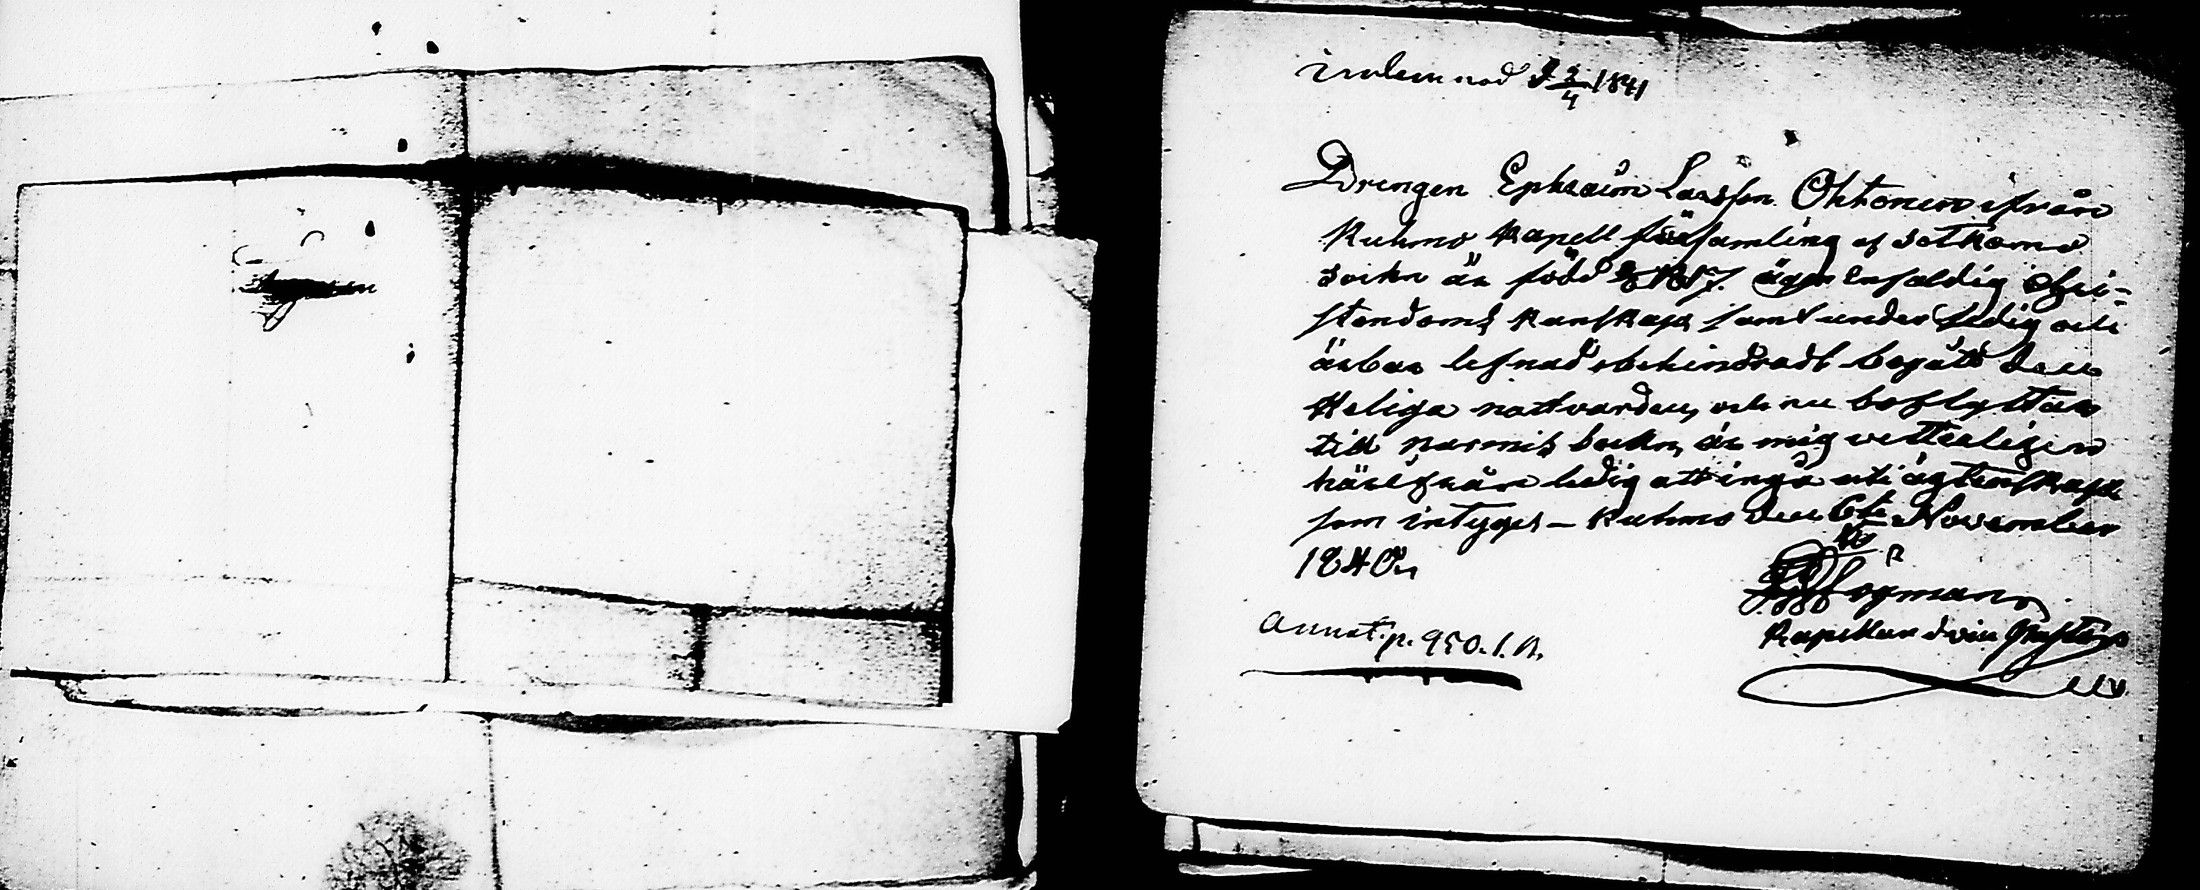 inlemnad d 2/4 1841
Drengen Ephraim Larsson Ohtonen ifrån
Kuhmo Kapell församling af Sotkamo
Sockn är född 1817. äger Enfaldig Chri-
stendoms kunskap samt under ledig och
ärbar lefnad obehindradt begått den
Heliga nattvarden, och nu beflyttar
till nurmis sockn, är mig vetterligen
härifrån ledig att ingå uti ägtenskap
som intygas — Kuhmo den 6te November
1840.
Högman
Kapellan
annot. p. 950. 1. A.